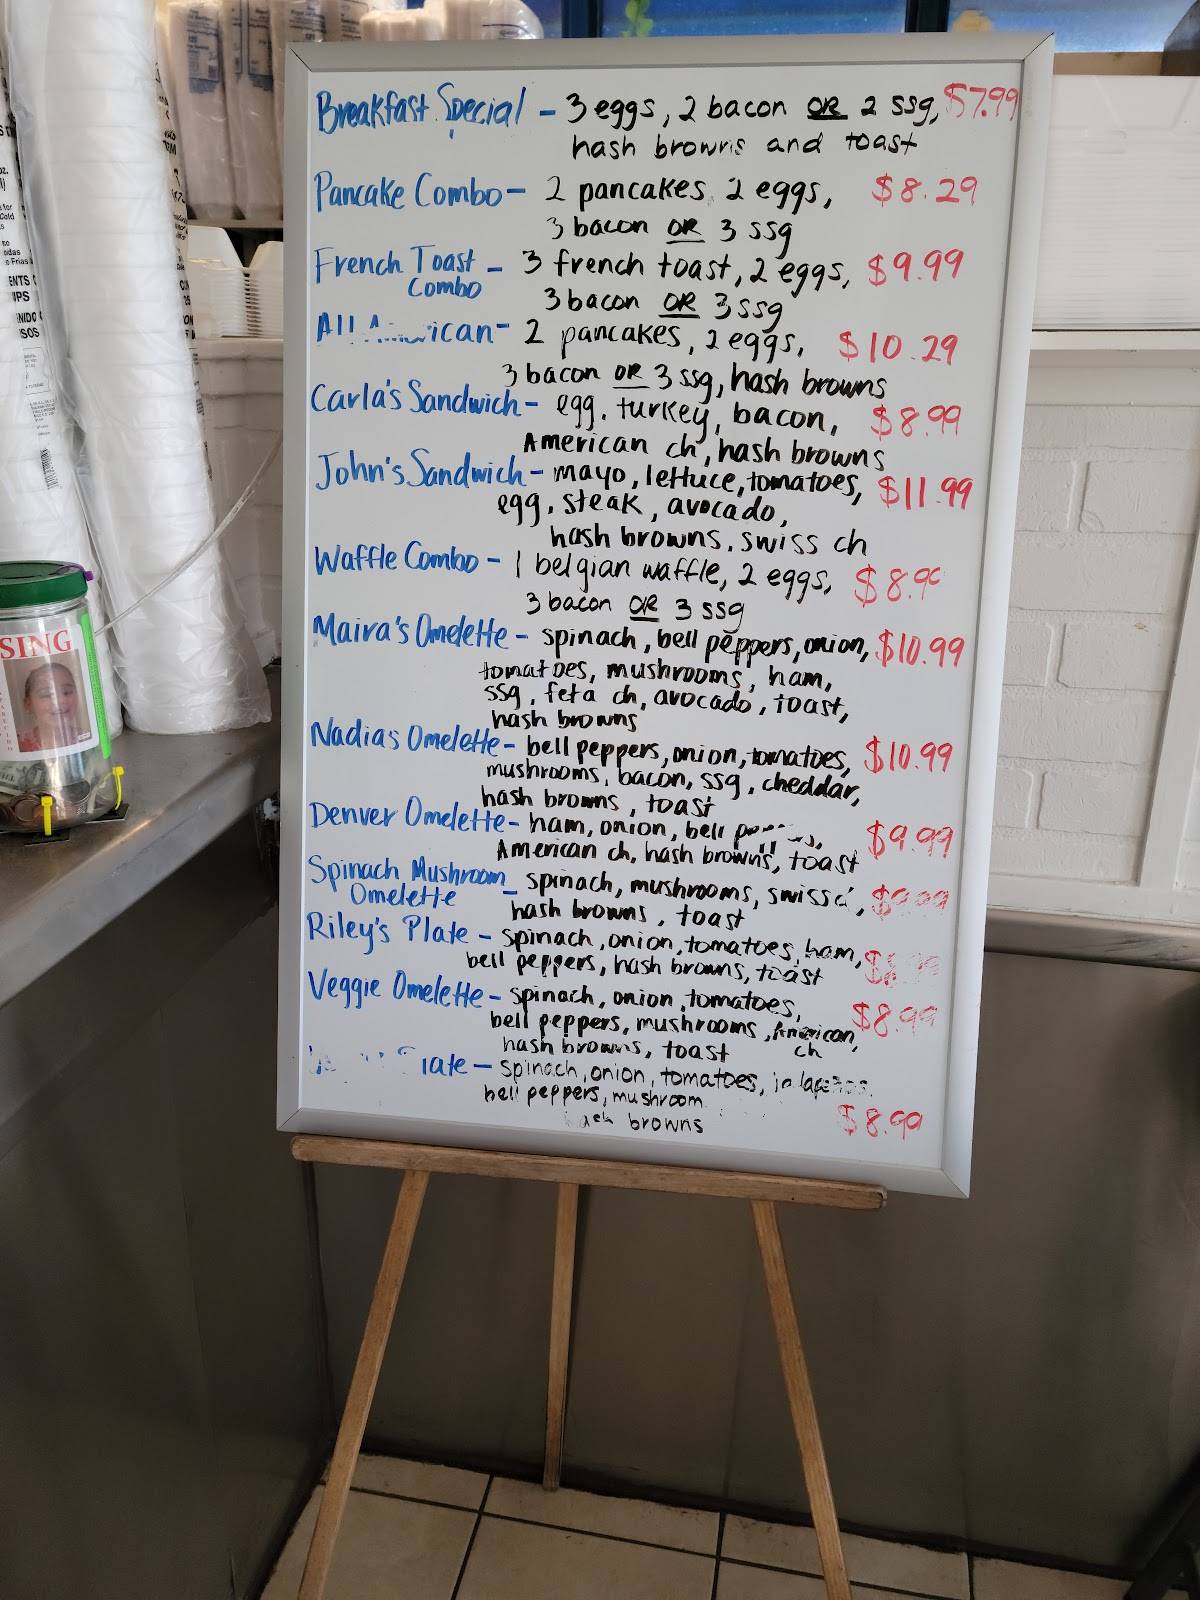 Breakfast Special - 3 eggs, 2 bacon OR 2 ssg, $7.99
hash browns and toast
Pancake Combo - 2 pancakes, 2 eggs, $8.29
3 bacon OR 3 ssg
French Toast Combo - 3 french toast, 2 eggs, $9.99
3 bacon OR 3 ssg
All American - 2 pancakes, 2 eggs, $10.29
3 bacon OR 3 ssg, hash browns
Carla's Sandwich - egg, turkey, bacon, $8.99
American ch, hash browns
John's Sandwich - mayo, lettuce, tomatoes, $11.99
egg, steak, avocado,
hash browns, swiss ch
Waffle Combo - 1 belgian waffle, 2 eggs,
3 bacon OR 3 ssg
Maira's Omelette - spinach, bell peppers, onion, $10.99
tomatoes, mushrooms, ham,
ssg, feta ch, avocado, toast,
hash browns
Nadia's Omelette - bell peppers, onion, tomatoes, $10.99
mushrooms, bacon, ssg, cheddar,
hash browns, toast
Denver Omelette - ham, onion, bell $9.99
American ch, hash browns, toast
Spinach Mushroom Omelette - spinach, mushrooms, swiss $9.99
hash browns, toast
Riley's Plate - spinach, onion, tomatoes, ham,
bell peppers, hash browns, toast
Veggie Omelette - spinach, onion, tomatoes, $8.99
bell peppers, mushrooms, American ch,
hash browns, toast
- spinach, onion, tomatoes,
bell peppers, mushroom
browns $8.99
SING